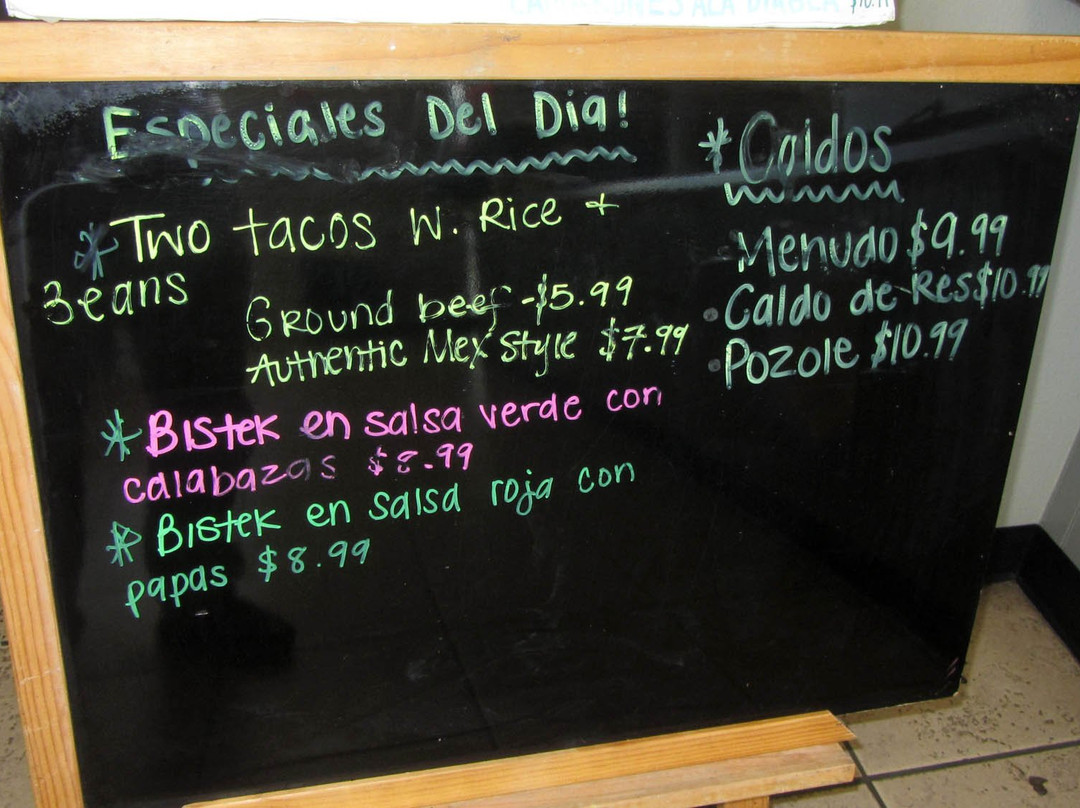 CAMARONES A LA DIABLA
Especiales Del Dia!
* Two tacos W. Rice +
Beans
Ground beef - $5.99
Authentic Mex Style $7.99
* Bistek en salsa verde con
calabazas $8.99
* Bistek en salsa roja con
papas $8.99
* Caldos
Menudo $9.99
• Caldo de Res $10.99
• Pozole $10.99